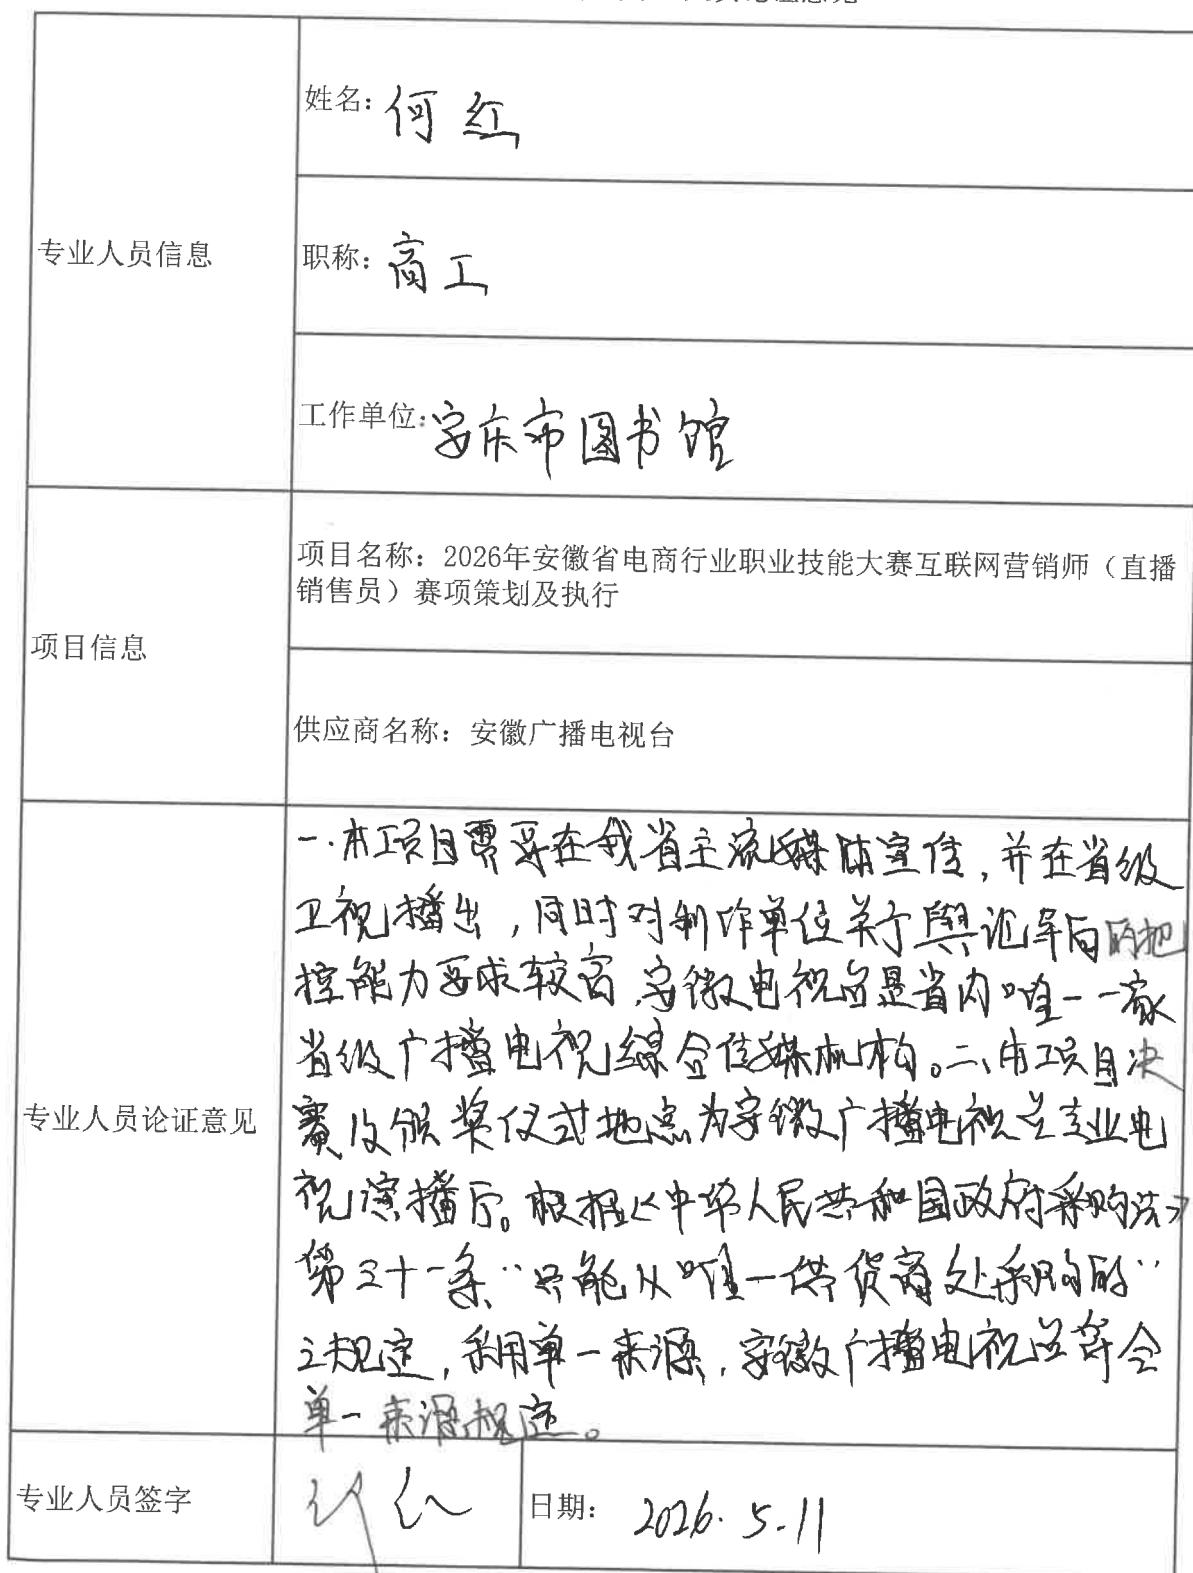 姓名：何红
专业人员信息
职称：高工
工作单位：安庆市图书馆
项目名称：2026年安徽省电商行业职业技能大赛互联网营销师（直播
销售员）赛项策划及执行
项目信息
供应商名称：安徽广播电视台
一.本项目需要在我省主流媒体宣传，并在省级
卫视播出，同时对制作单位关于舆论导向的把
控能力要求较高，安徽电视台是省内唯一一家
省级广播电视综合传媒机构。二、本项目决
专业人员论证意见
赛及颁奖仪式地点为安徽广播电视台专业电
视演播厅。根据《中华人民共和国政府采购法》
第三十一条“只能从唯一供货商处采购的”
之规定，采用单一来源，安徽广播电视台符合
单一来源规定。
专业人员签字
何红
日期：2026.5.11